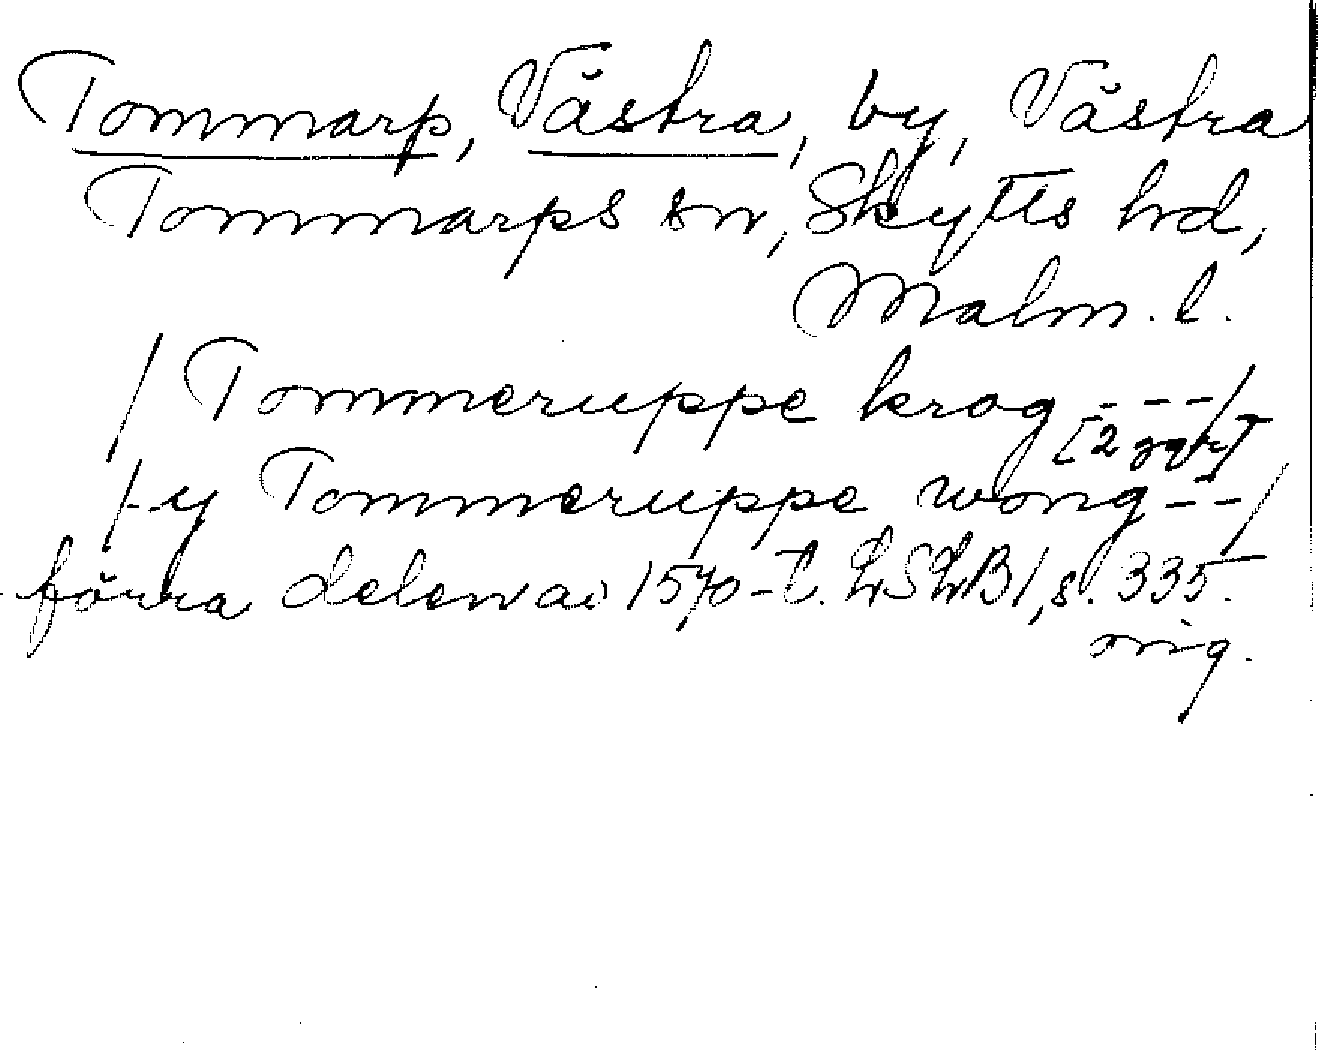 Tommarp, Västra, by, Västra
Tommarps sn, Skytts hd,
Malm. l.
/Tommeruppe krog ---/
[2 ggr]
/-y Tommeruppe wong --/
förra delen av 1570-t. LSLB 1, s. 335.
orig.